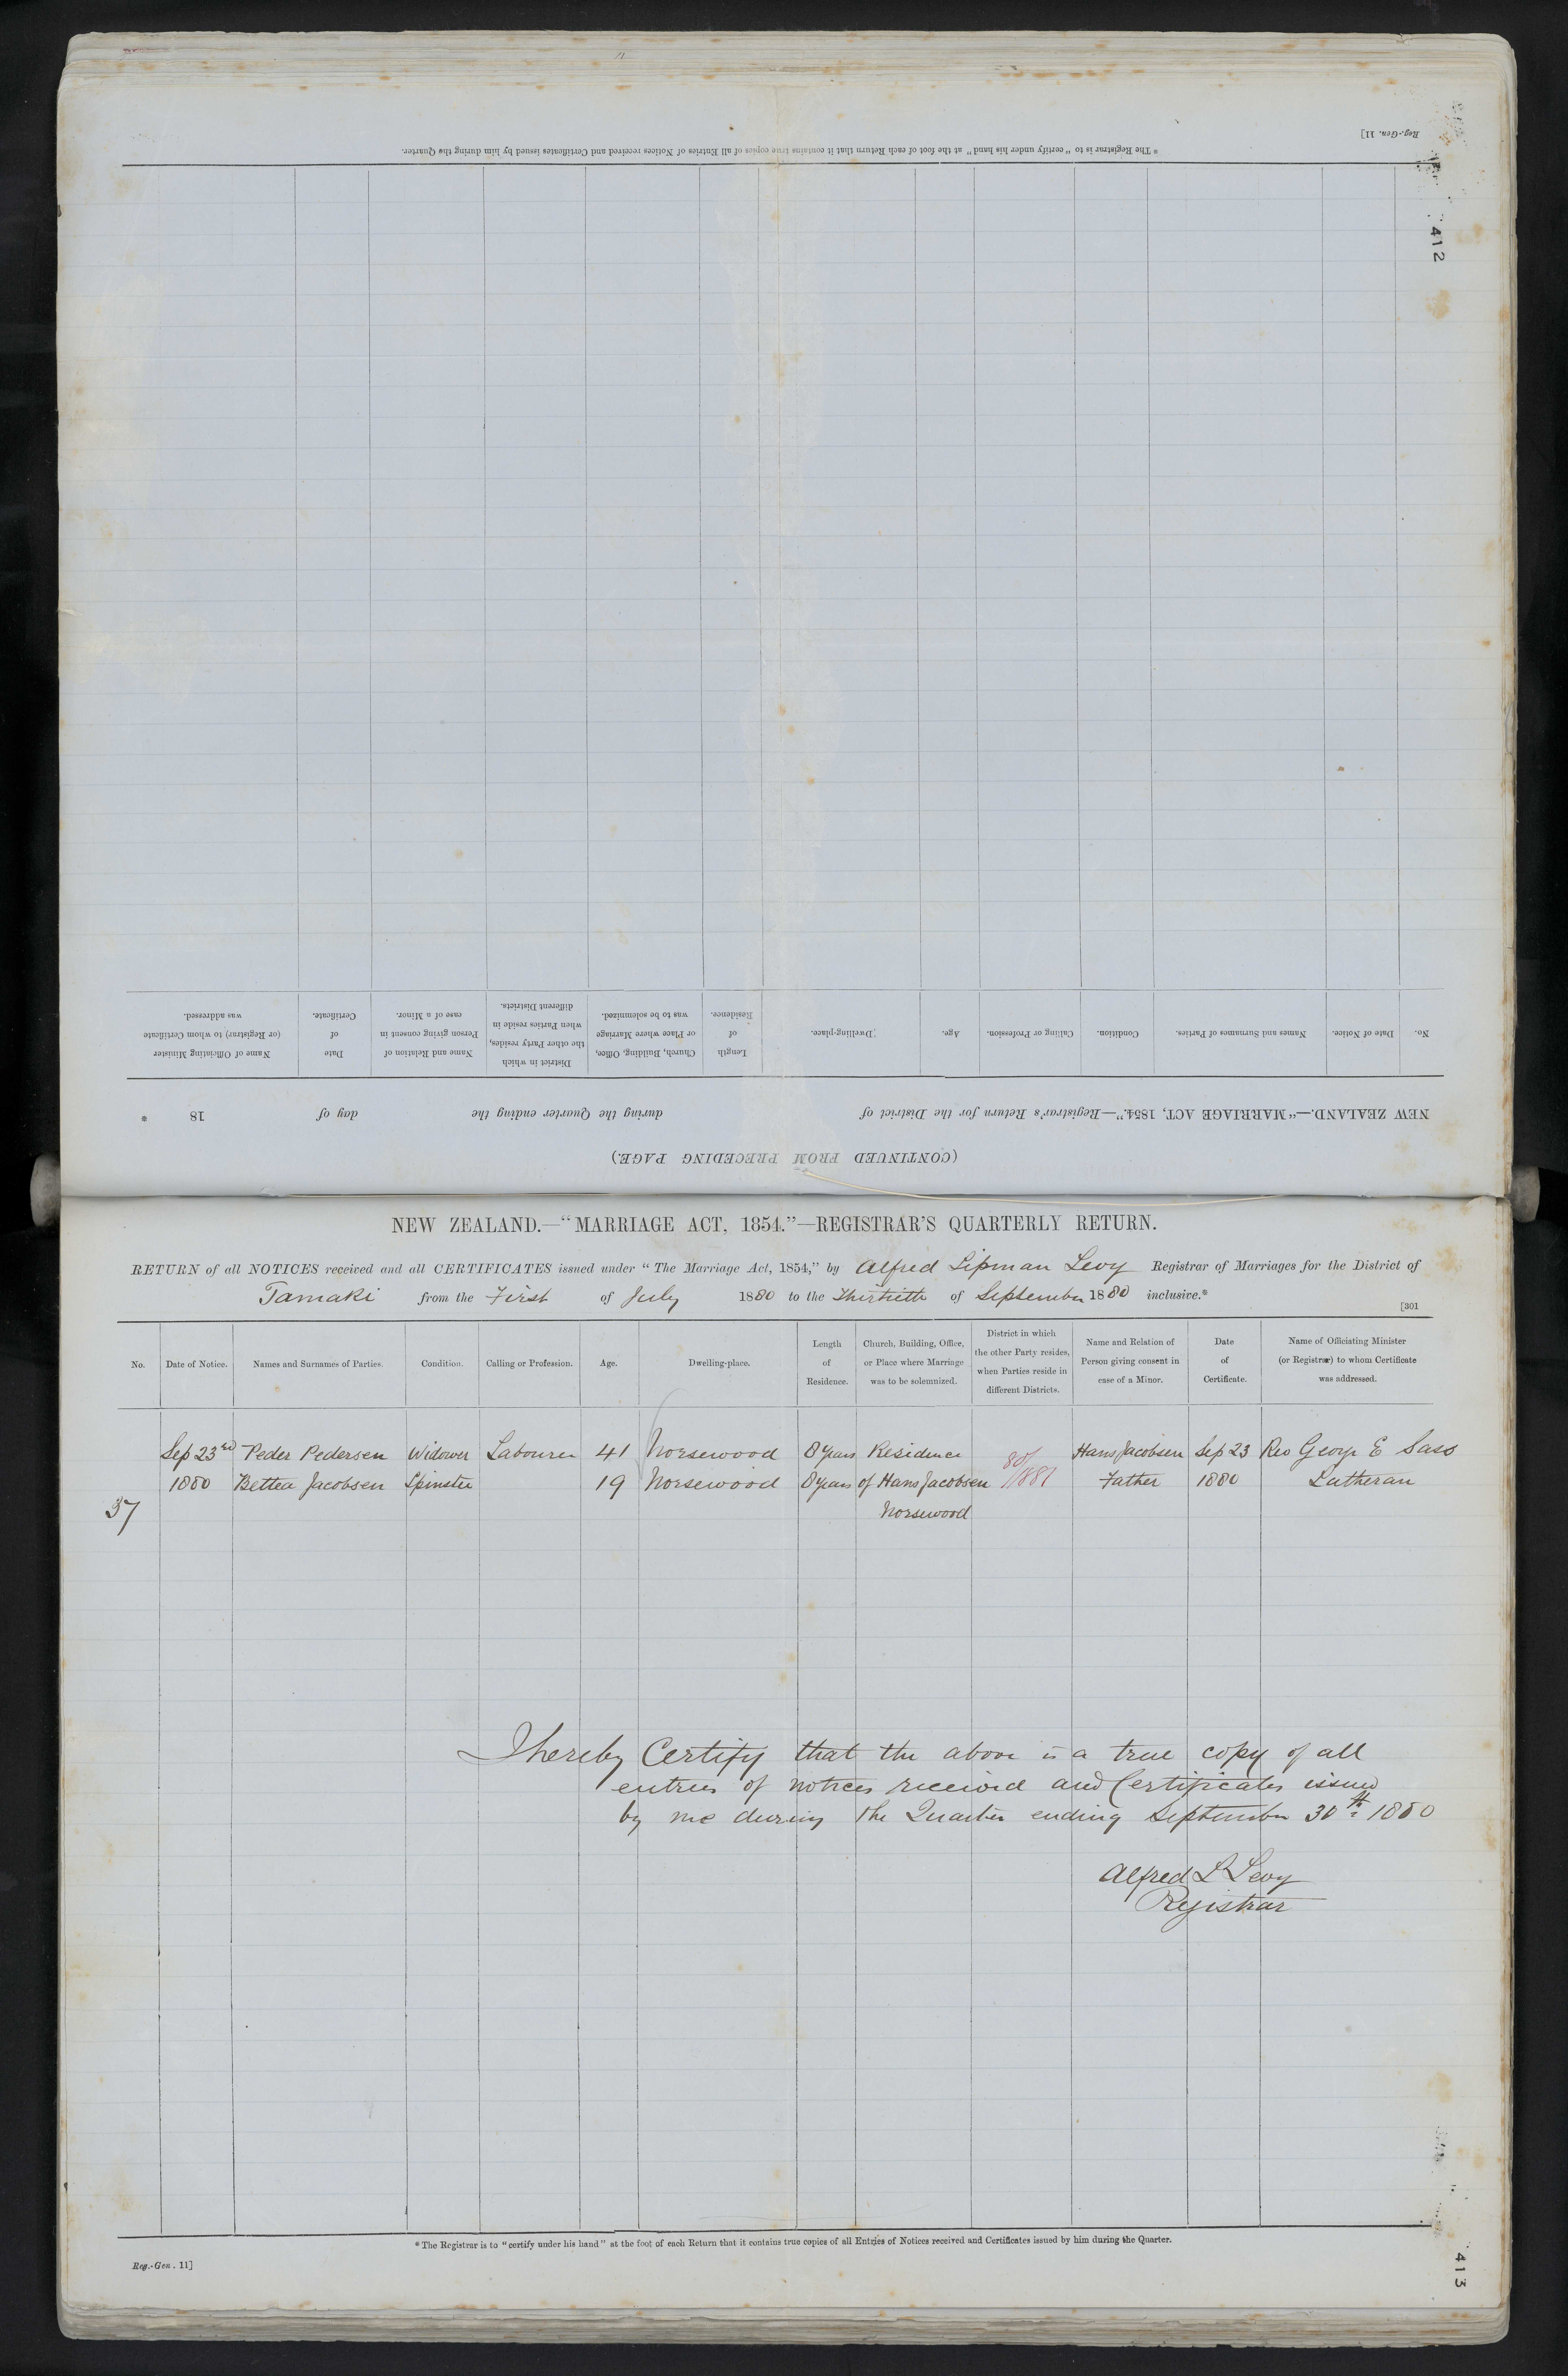 Reg.-Gen. 11]
* The Registrar is to "certify under his hand" at the foot of each Return that it contains true copies of all Entries of Notices received and Certificates issued by him during the Quarter.
412
(CONTINUED FROM PRECEDING PAGE.)
NEW ZEALAND.—"MARRIAGE ACT, 1854."—Registrar's Return for the District of during the Quarter ending the day of 18 .
No. Date of Notice. Names and Surnames of Parties. Condition. Calling or Profession. Age. Dwelling-place. Length of Residence. Church, Building, Office, or Place where Marriage was to be solemnized. District in which the other Party resides, when Parties reside in different Districts. Name and Relation of Person giving consent in case of a Minor. Date of Certificate. Name of Officiating Minister (or Registrar) to whom Certificate was addressed.
NEW ZEALAND.—"MARRIAGE ACT, 1854."—REGISTRAR'S QUARTERLY RETURN.
RETURN of all NOTICES received and all CERTIFICATES issued under "The Marriage Act, 1854," by Alfred Lipman Levy Registrar of Marriages for the District of
Tamaki from the First of July 1880 to the Thirtieth of September 1880 inclusive.*
[301
No. Date of Notice. Names and Surnames of Parties. Condition. Calling or Profession. Age. Dwelling-place. Length of Residence. Church, Building, Office, or Place where Marriage was to be solemnized. District in which the other Party resides, when Parties reside in different Districts. Name and Relation of Person giving consent in case of a Minor. Date of Certificate. Name of Officiating Minister (or Registrar) to whom Certificate was addressed.
Sep 23rd Peder Pedersen Widower Labourer 41 Norsewood 8 Years Residence 80/ Hans Jacobsen Sep 23 Rev George E Sass
1880 Bettea Jacobsen Spinster 19 Norsewood 8 Years of Hans Jacobsen 1881 Father 1880 Lutheran
37 Norsewood
I hereby Certify that the above is a true copy of all
entries of notices received and Certificates issued
by me during the Quarter ending September 30th 1880
Alfred L Levy
Registrar
* The Registrar is to "certify under his hand" at the foot of each Return that it contains true copies of all Entries of Notices received and Certificates issued by him during the Quarter.
Reg.-Gen. 11]
413